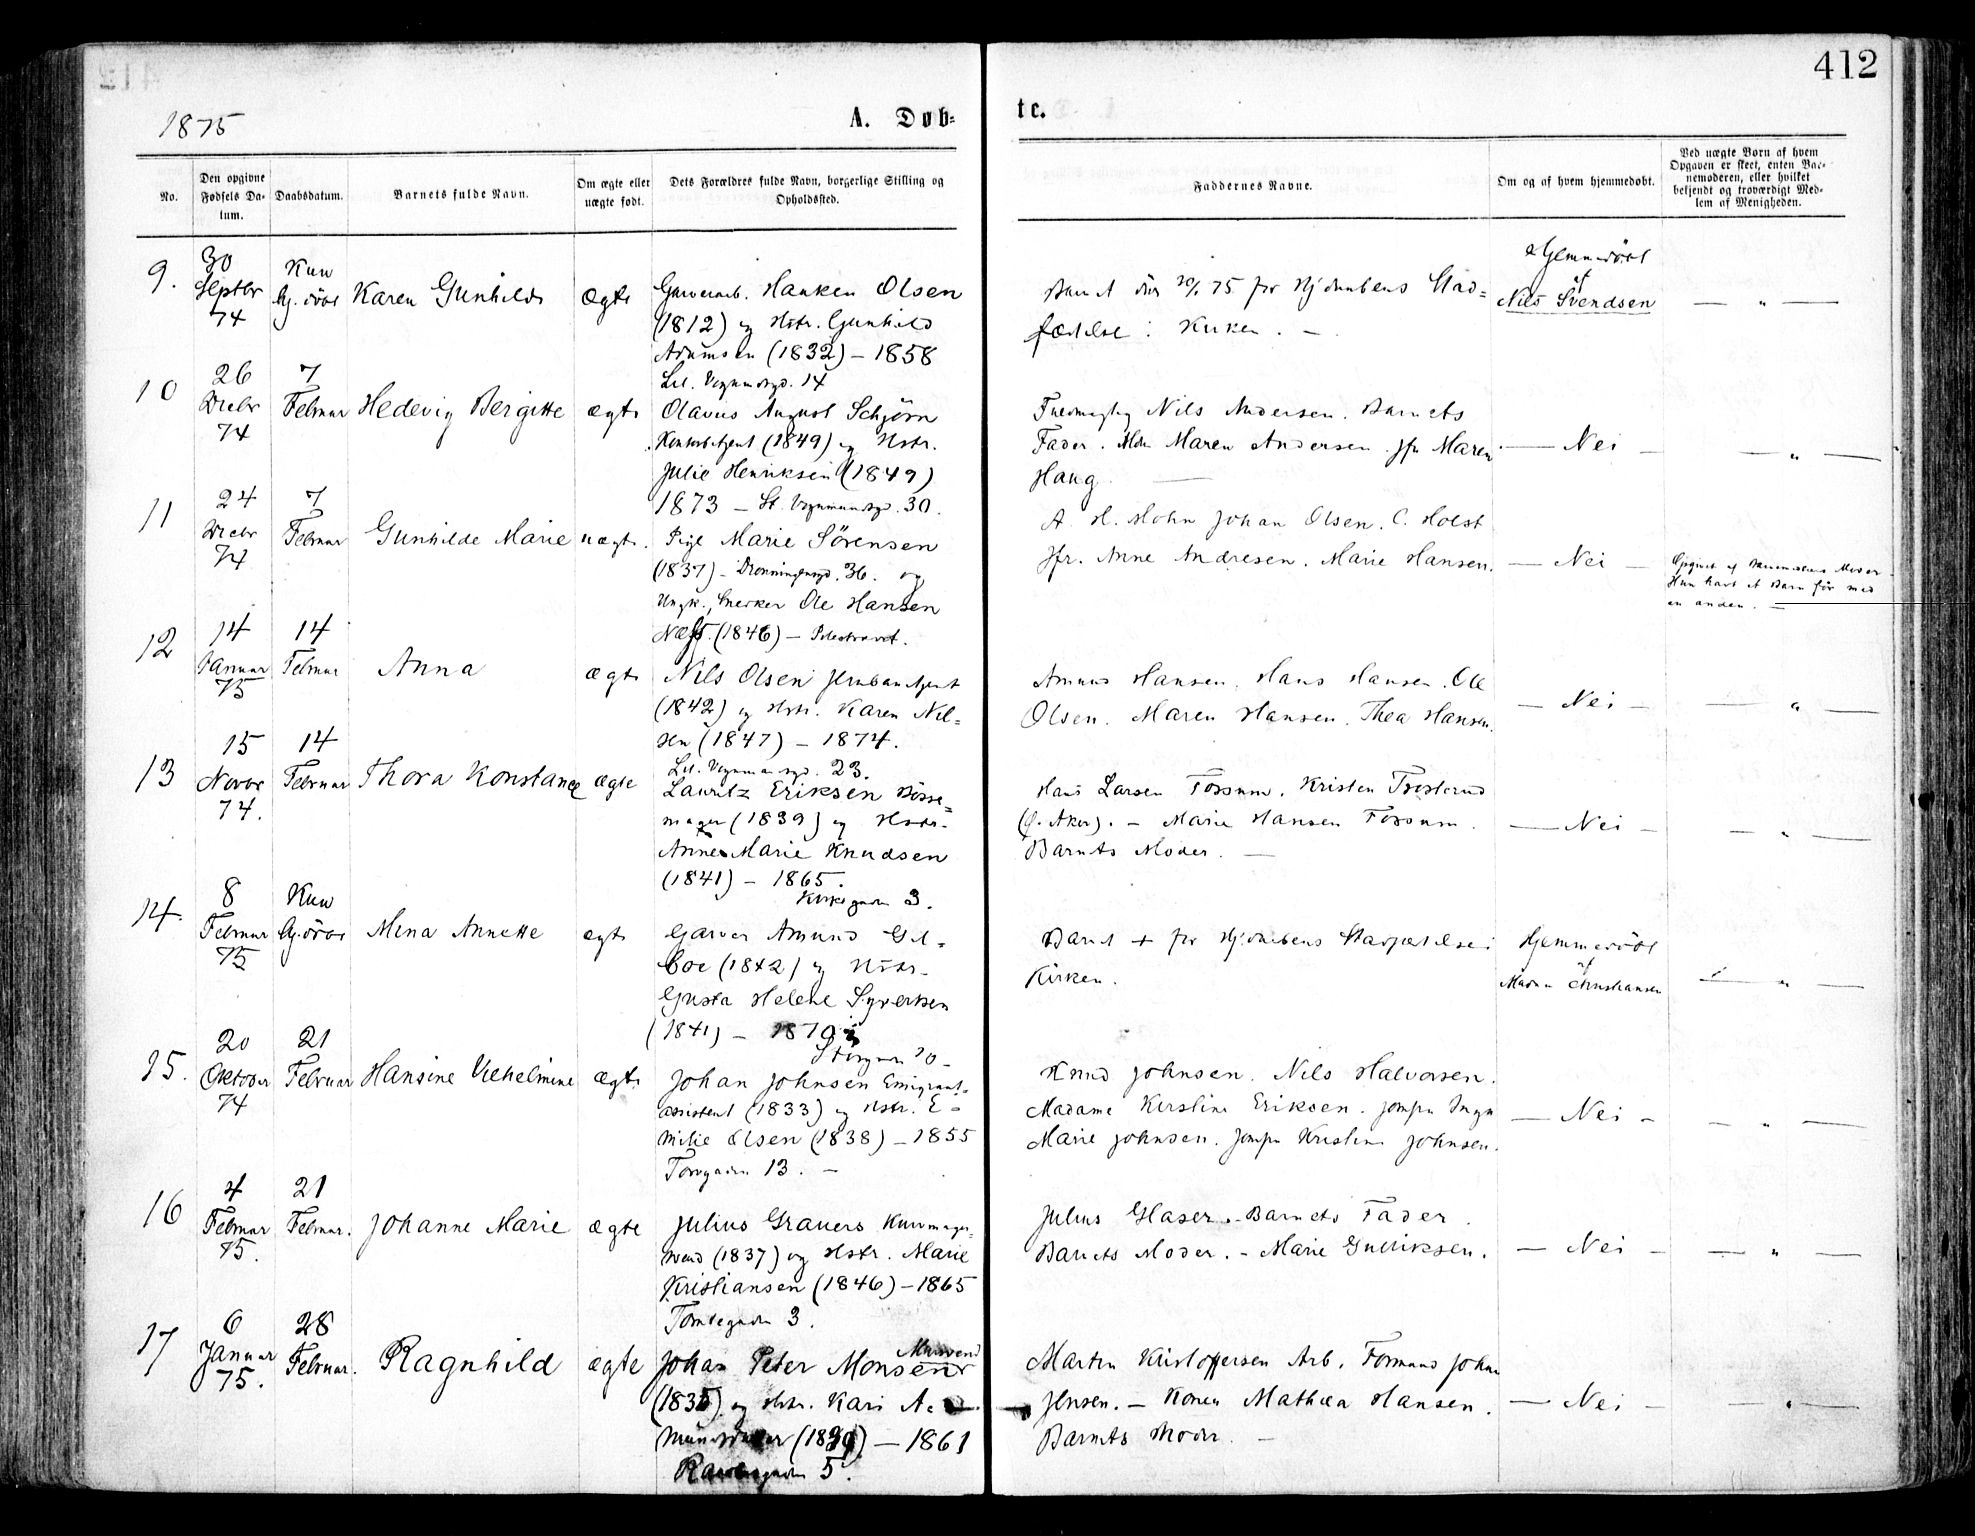 412
1875
A. Døb-
te.
No.
Den opgivne Fødsels Da-tum.
Daabsdatum.
Barnets fulde Navn.
Om ægte eller uægte født.
Dets Forældres fulde Navn, borgerlige Stilling og Opholdssted.
Faddernes Navne.
Om og af hvem hjemmedøbt.
Ved uægte Børn af hvem Opgaven er skeet, enten Bar-nemoderen, eller hvilket bekjendt og troværdigt Med-lem af Menigheden.
9.
30 Septbr 74
Kun hj. døbt
Karen Gunhilde
Ægte
Garverarb. Hanken Olsen
(1812) og Hstr. Gunhild
Adamsen (1832) – 1858
Lil. Vognmdsgd. 14
Barnet døs 75 før Hjdaabens Stad=
fæstelse i Kirken. –
Hjemmedøbt
af
Nils Svendsen
— " —
10
26 Decbr 74
7 Februar
Hedevig Bergitte
ægte
Olavus August Schjörn
Kontorbetjent (1849) og Hstr.
Julie Henriksen (1849)
1873 – St. Vognmandsgd. 30.
Fuldmægtig Nils Andersen. Barnets
Fader. Mdm Maren Andersen. Jfr Maren
Haug. —
— Nei –
— " —
11
24 Decbr 74
7 Februar
Gunhilde Marie
uægte.
Pige Marie Sörensen
(1837) – Dronningensgd. 36. og
Ungk., Snekker Ole Hansen
Næss. (1846) – Pilestrædet.
A. H. Hohn Johan Olsen. C. Holst
Jfr. Anne Andresen. Marie Hansen.
— Nei –
Opgivet af Barnets Moder –
Hun havt et Barn för med
en anden. –
12
14 Januar 75
14 Februar
Anna
ægte
Nils Olsen Jernbanebetjent
(1842) og Hstr. Karen Nil-
sen (1847) – 1874.
Lil. Vognmandsgd. 23.
Amund Hansen. Hans Hansen. Ole
Olsen. Maren Hansen. Thea Hansen.
– Nei –
— " —
13
15 Novbr 74.
14 Februar
Thora Konstance
ægte
Lauritz Eriksen Bösse=
mager (1839) og Hstr.
Anne Marie Knudsen
(1841) – 1865.
Kirkegaden 3.
Hans Larsen Fossum. Kristen Trosterud
(Ø. Aker). – Marie Hansen Fossum.
Barnets Moder. —
— Nei –
– " —
14.
8 Februar 75
Kun hj. døbt
Mina Annette
ægte
Garver Amund Gul-
boe (1842) og Hstr.
Gusta Helene Syvertsen
(1841) – 1870
Storgaden 20 –
Barnet + før Hjdaabens Stadfæstelse i
Kirken.
Hjemmedøbt
af
Madam Christiansen
— " —
15.
20 Oktober 74
21 Februar
Hansine Vilhelmine
ægte
Johan Johnsen Emigrant-
assistent (1833) og Hstr. E-
milie Olsen (1838) – 1855
Torvgaden 13. –
Knud Johnsen. Nils Halvorsen.
Madame Kirstine Eriksen. Jomfru Inga
Marie Johnsen. Jomfru Kristine Johnsen.
— Nei –
– " —
16
4 Februar 75.
21 Februar.
Johanne Marie
ægte
Julius Grauers Kurvmager-
svend (1837) og Hstr. Marie
Kristiansen (1846) – 1865
Tomtegaden 3.
Julius Glaser. – Barnets Fader.
Barnets Moder. – Marie Gulliksen.
— Nei –
— " —
17
6 Januar 75.
28 Februar.
Ragnhild
ægte
Johan Peter Monsen Mursvend
(1835) og Hstr. Kari A-
mundsdatter – 1861
5.
Martin Kristoffersen Arb. Formand John
Jensen. – Konen Mathea Hansen.
Barnets Moder. –
— Nei –
— " —